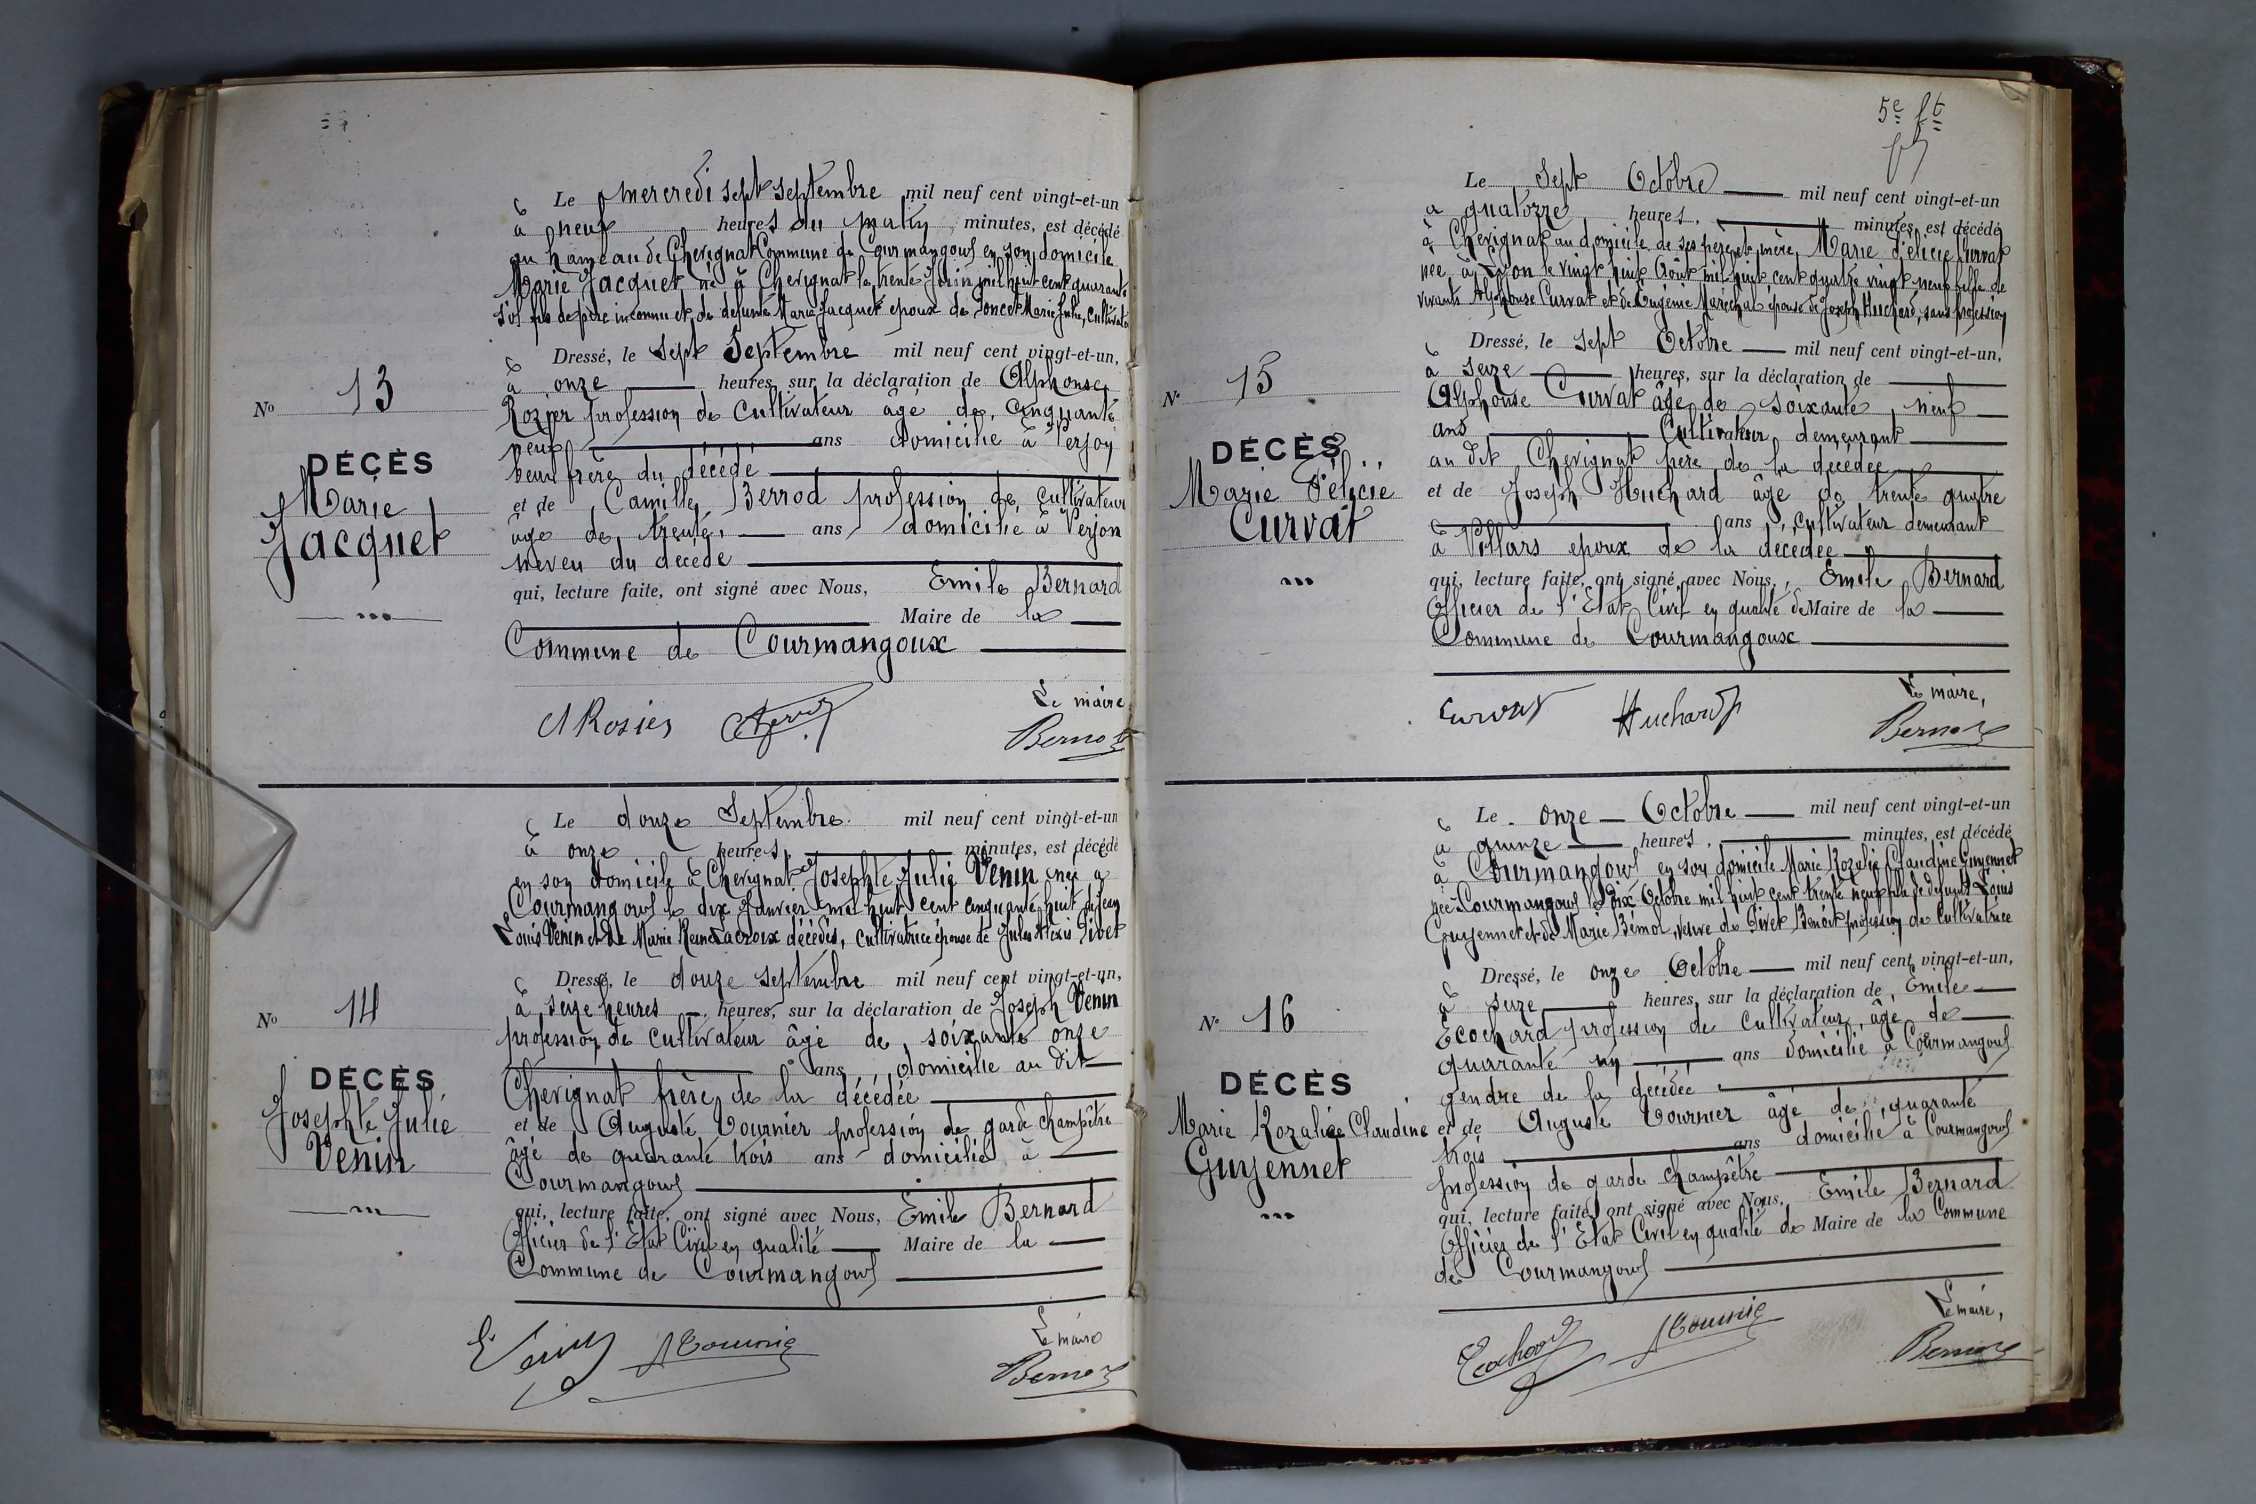 Le mercredi sept septembre mil neuf cent vingt-et-un
à neuf heures du matin minutes, est décédé
au hameau de Chevignat Commune de Courmangoux en son domicile
Marie Jacquet né à Chevignat le trente Juin mil huit cent quarante
six fils de père inconnu et de defunte Marie Jacquet epoux de Poncet Marie Julie, Cultivateur
Dressé, le sept Septembre mil neuf cent vingt-et-un,
à onze heures, sur la déclaration de Alphonse
Rozier profession de Cultivateur âgé de cinquante
neuf ans domicilié à Verjon
beau frère du décédé
et de Camille Berrod profession de cultivateur
âgé de trente ans domicilié à Verjon
neveu du décédé
qui, lecture faite, ont signé avec Nous, Emile Bernard
Maire de la
Commune de Courmangoux
Le maire
A Rosier
Bernard
No 13
DÉCÈS
Marie
Jacquet
Le douze Septembre mil neuf cent vingt-et-un
à onze heures, minutes, est décédé
en son domicile à Chevignat Josephte Julie Venin née à
Courmangoux le dix Janvier mil huit cent cinquante huit de Jean
Louis Venin et de Marie Reine Lacroix décédés, cultivatrice épouse de Jules Alexis Pivet
Dressé, le douze septembre mil neuf cent vingt-et-un,
à seize heures heures, sur la déclaration de Joseph Venin
profession de cultivateur âgé de soixante onze
ans, domicilié au dit
Chevignat frère de la décédée
et de Auguste Tournier profession de garde champêtre
âgé de quarante trois ans domicilié à
Courmangoux
qui, lecture faite, ont signé avec Nous, Emile Bernard
Officier de l'Etat Civil en qualité Maire de la
Commune de Courmangoux
Le maire
Venin
A Tournier
Bernard
No 14
DÉCÈS
Josephte Julie
Venin
5e ft
Le Sept Octobre mil neuf cent vingt-et-un
à quatorze heures, minutes, est décédé
à Chevignat au domicile de ses père et mère, Marie Félicie Curvat
née à Lyon le vingt huit Août mil huit cent quatre vingt neuf fille de
vivants Alphonse Curvat et de Eugénie Maréchal épouse de Joseph Huchard, sans profession
Dressé, le sept Octobre mil neuf cent vingt-et-un,
à seize heures, sur la déclaration de
Alphonse Curvat âgé de soixante neuf
ans Cultivateur demeurant
au dit Chevignat père de la décédée
et de Joseph Huchard âgé de trente quatre
ans, cultivateur demeurant
à Villars epoux de la décédée
qui, lecture faite, ont signé avec Nous, Emile Bernard
Officier de l'Etat Civil en qualité de Maire de la
Commune de Courmangoux
Le maire,
Curvat
Huchard
Bernard
No 15
DÉCÈS
Marie Félicie
Curvat
Le onze Octobre mil neuf cent vingt-et-un
à quinze heures, minutes, est décédé
à Courmangoux en son domicile Marie Rozalie Claudine Guyennet
née à Courmangoux le Dix Octobre mil huit cent trente neuf fille de defunts Louis
Guyennet et de Marie Bémol, veuve de Pivet Benoit profession de Cultivatrice
Dressé, le onze Octobre mil neuf cent vingt-et-un,
à seize heures, sur la déclaration de Emile
Ecochard profession de Cultivateur, âgé de
quarante un ans domicilié à Courmangoux
gendre de la décédée
et de Auguste Tournier âgé de quarante
trois ans domicilié à Courmangoux
profession de garde champêtre
qui, lecture faite, ont signé avec Nous, Emile Bernard
Officier de l'Etat Civil en qualité de Maire de la Commune
de Courmangoux
Le maire,
Ecochard
A Tournier
Bernard
No 16
DÉCÈS
Marie Rozalie Claudine
Guyennet